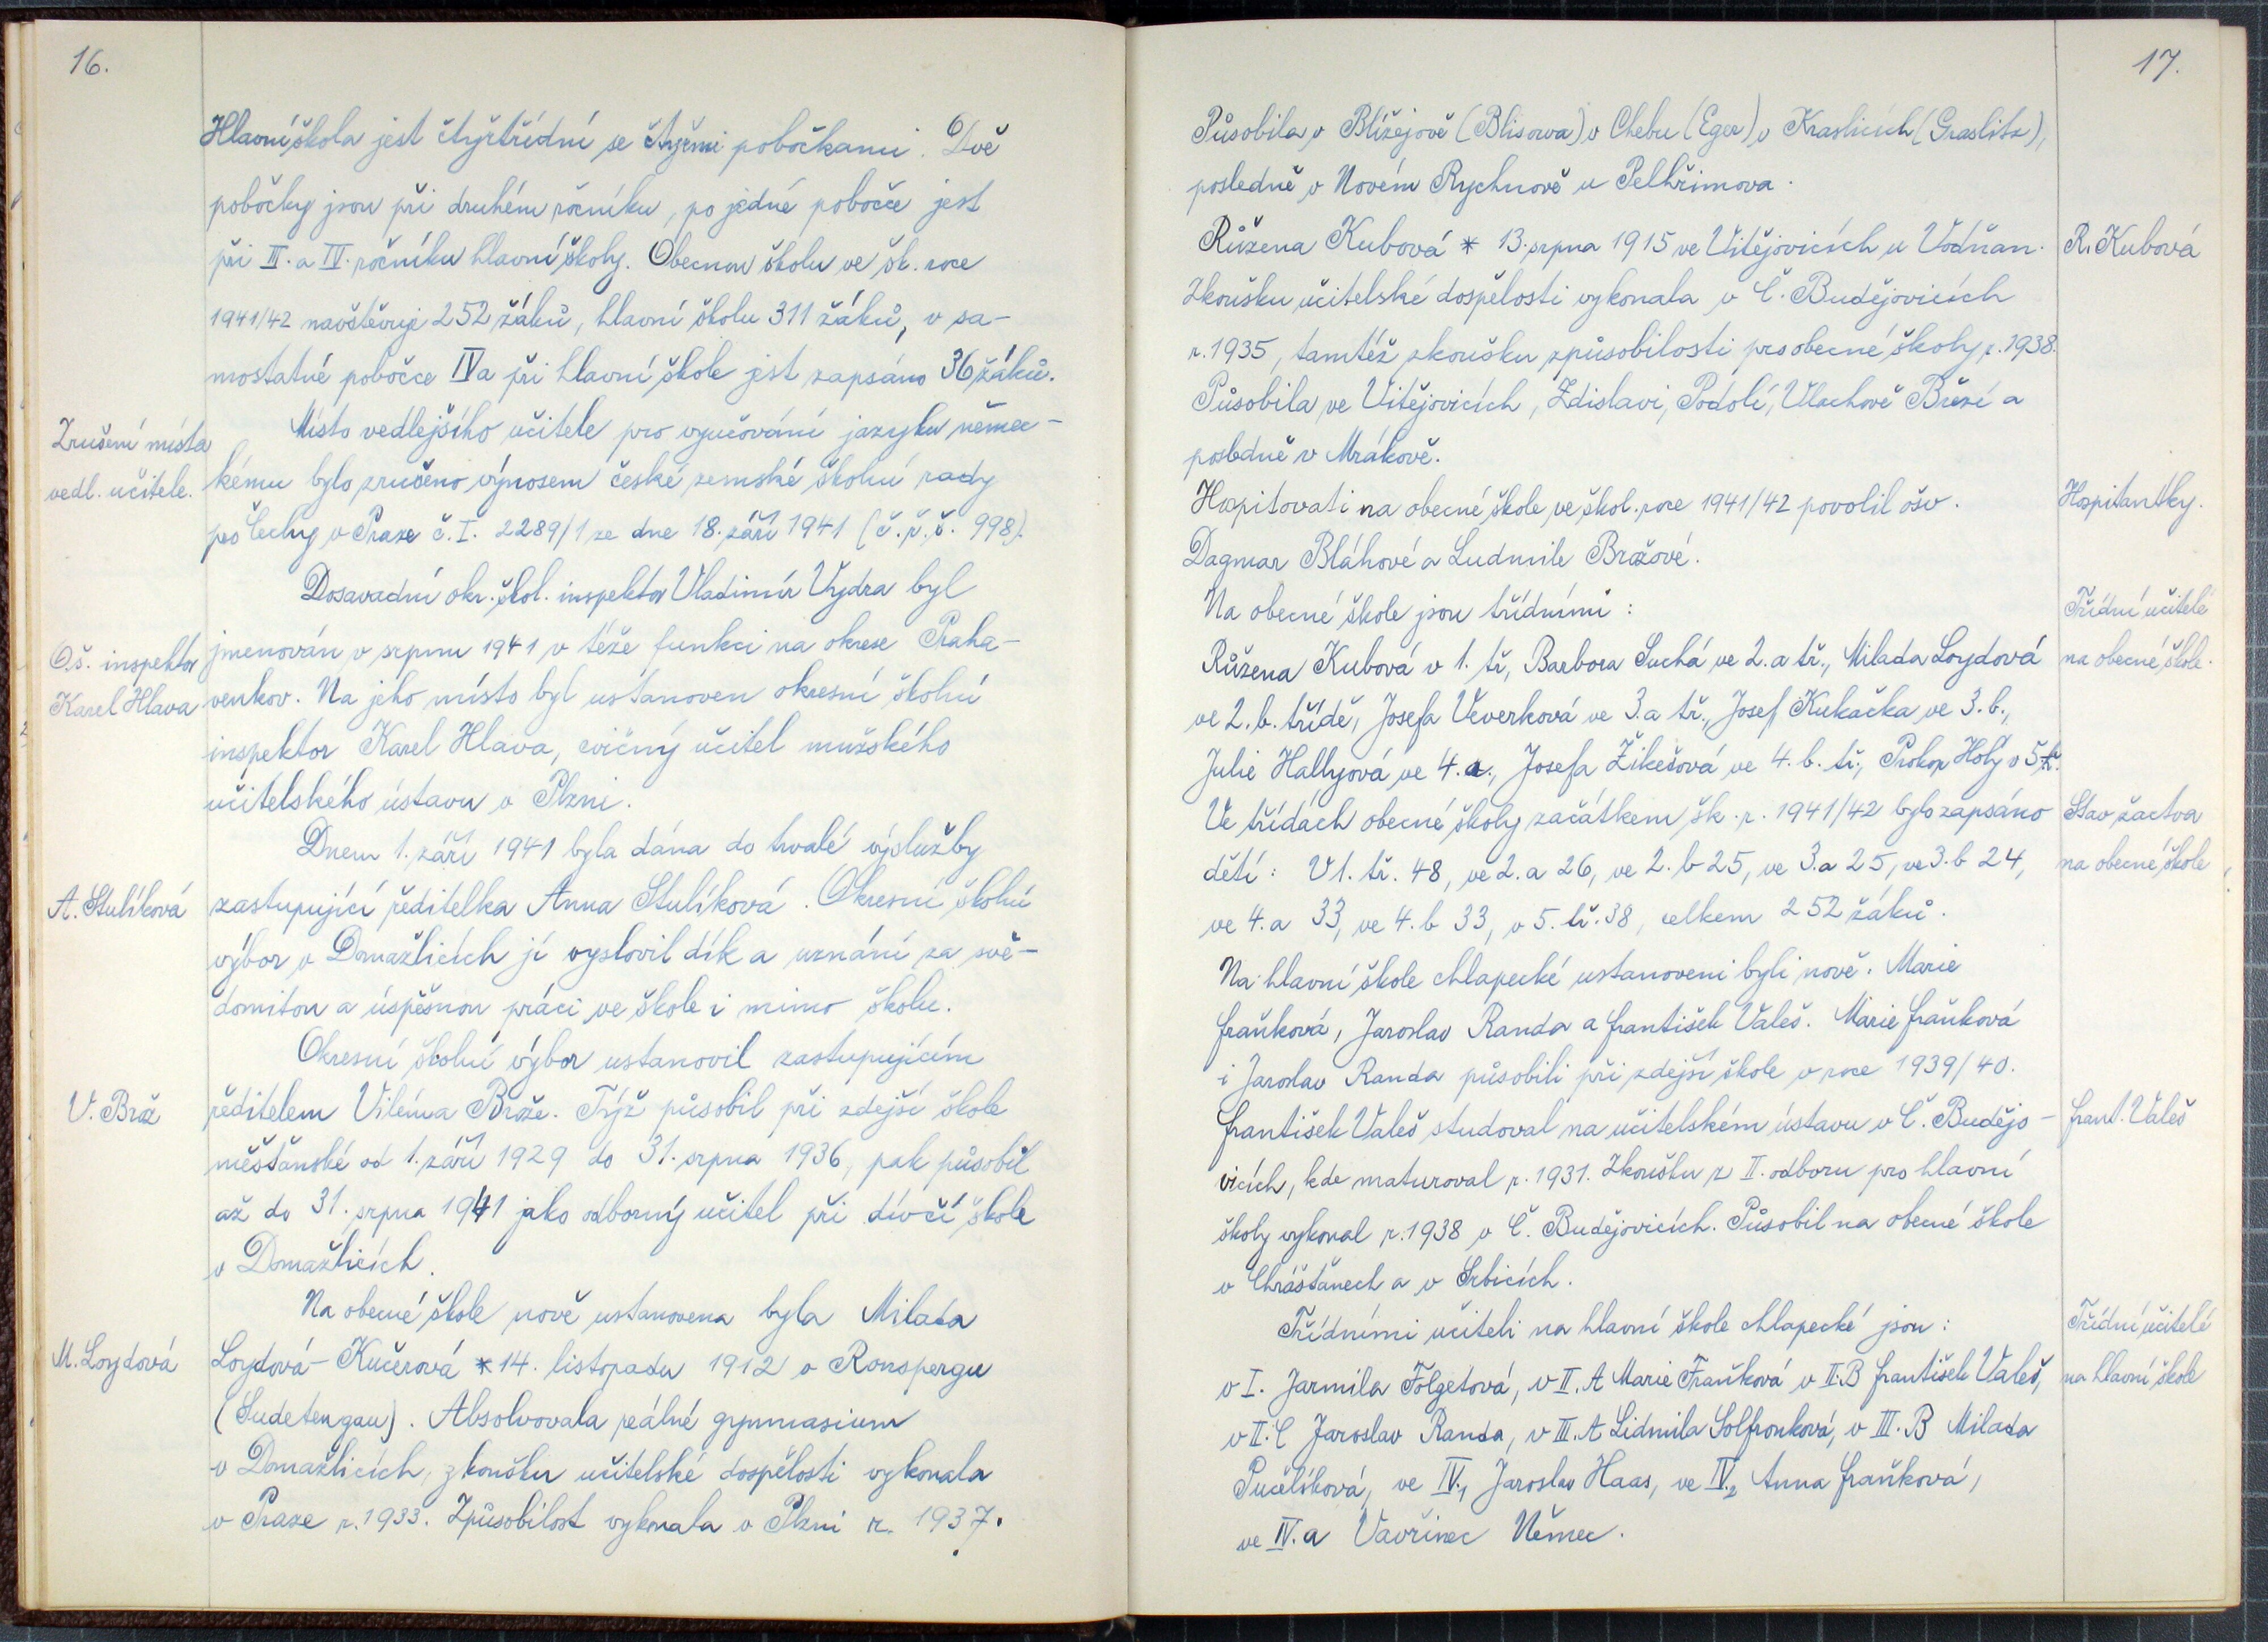 16.
Hlavní škola jest čtyřtřídní se čtyřmi pobočkami. Dvě
pobočky jsou při druhém ročníku, po jedné pobočce jest
při III. a IV. ročníku hlavní školy. Obecnou školu ve šk. roce
1941/42 navštěvuje 252 žáků, hlavní školu 311 žáků, v sa-
mostatné pobočce IVa při hlavní škole jest zapsáno 36 žáků.
Zrušení místa
vedl. učitele.
Místo vedlejšího učitele pro vyučování jazyku němec-
kému bylo zrušeno výnosem české zemské školní rady
pro Čechy v Praze č. I. 2289/1 ze dne 18. září 1941 (č. ř. š. 998).
Dosavadní okr. škol. inspektor Vladimír Vydra byl
O.š. inspektor
Karel Hlava
jmenován v srpnu 1941 v téže funkci na okrese Praha-
venkov. Na jeho místo byl ustanoven okresní školní
inspektor Karel Hlava, cvičný učitel mužského
učitelského ústavu v Plzni.
Dnem 1. září 1941 byla dána do trvalé výslužby
A. Stulíková
zastupující ředitelka Anna Stulíková. Okresní školní
výbor v Domažlicích jí vyslovil dík a uznání za svě-
domitou a úspěšnou práci ve škole i mimo školu.
Okresní školní výbor ustanovil zastupujícím
V. Brož
ředitelem Viléma Brože. Týž působil při zdejší škole
měšťanské od 1. září 1929 do 31. srpna 1936, pak působil
až do 31. srpna 1941 jako odborný učitel při dívčí škole
v Domažlicích.
Na obecné škole nově ustanovena byla Milada
M. Loydová
Loydová-Kučerová * 14. listopadu 1912 v Ronspergu
(Sudetengau). Absolvovala reálné gymnasium
v Domažlicích, zkoušku učitelské dospělosti vykonala
v Praze r. 1933. Způsobilost vykonala v Plzni r. 1937.
17.
Působila v Blížejově (Blisowa) v Chebu (Eger) v Kraslicích (Graslitz),
posledně v Novém Rychnově u Pelhřimova.
Růžena Kubová * 13. srpna 1915 ve Vitějovicích u Vodňan.
R. Kubová
Zkoušku učitelské dospělosti vykonala v Č. Budějovicích
r. 1935, tamtéž zkoušku způsobilosti pro obecné školy r. 1938.
Působila ve Vitějovicích, Zdislavi, Podolí, Vlachově Březí a
posledně v Mrákově.
Hospitovati na obecné škole ve škol. roce 1941/42 povolil ošv.
Hospitantky.
Dagmar Bláhové a Ludmile Brožové.
Na obecné škole jsou třídními:
Třídní učitelé
na obecné škole.
Růžena Kubová v 1. tř., Barbora Suchá ve 2. a tř., Milada Loydová
ve 2. b. třídě, Josefa Veverková ve 3. a tř., Josef Kukačka ve 3. b.,
Julie Hallyová ve 4. a., Josefa Žikešová ve 4. b. tř., Prokop Holý v 5 tř.
Ve třídách obecné školy začátkem šk. r. 1941/42 bylo zapsáno
Stav žactva
na obecné škole
dětí: V 1. tř. 48, ve 2. a 26, ve 2. b 25, ve 3. a 25, ve 3. b 24,
ve 4. a 33, ve 4. b 33, v 5. tř. 38, celkem 252 žáků.
Na hlavní škole chlapecké ustanoveni byli nově. Marie
Fraňková, Jaroslav Randa a František Valeš. Marie Fraňková
i Jaroslav Randa působili při zdejší škole v roce 1939/40.
František Valeš studoval na učitelském ústavu v Č. Budějo-
Frant. Valeš
vicích, kde maturoval r. 1931. Zkoušku z II. odboru pro hlavní
školy vykonal r. 1938 v Č. Budějovicích. Působil na obecné škole
v Chrášťanech a v Srbicích.
Třídními učiteli na hlavní škole chlapecké jsou:
Třídní učitelé
na hlavní škole
v I. Jarmila Folgetová, v II. A Marie Fraňková v II. B František Valeš,
v II. C Jaroslav Randa, v III. A Lidmila Solfronková, v III. B Milada
Pučelíková, ve IV.1 Jaroslav Haas, ve IV.2 Anna Fraňková,
ve IV. a Vavřinec Němec.